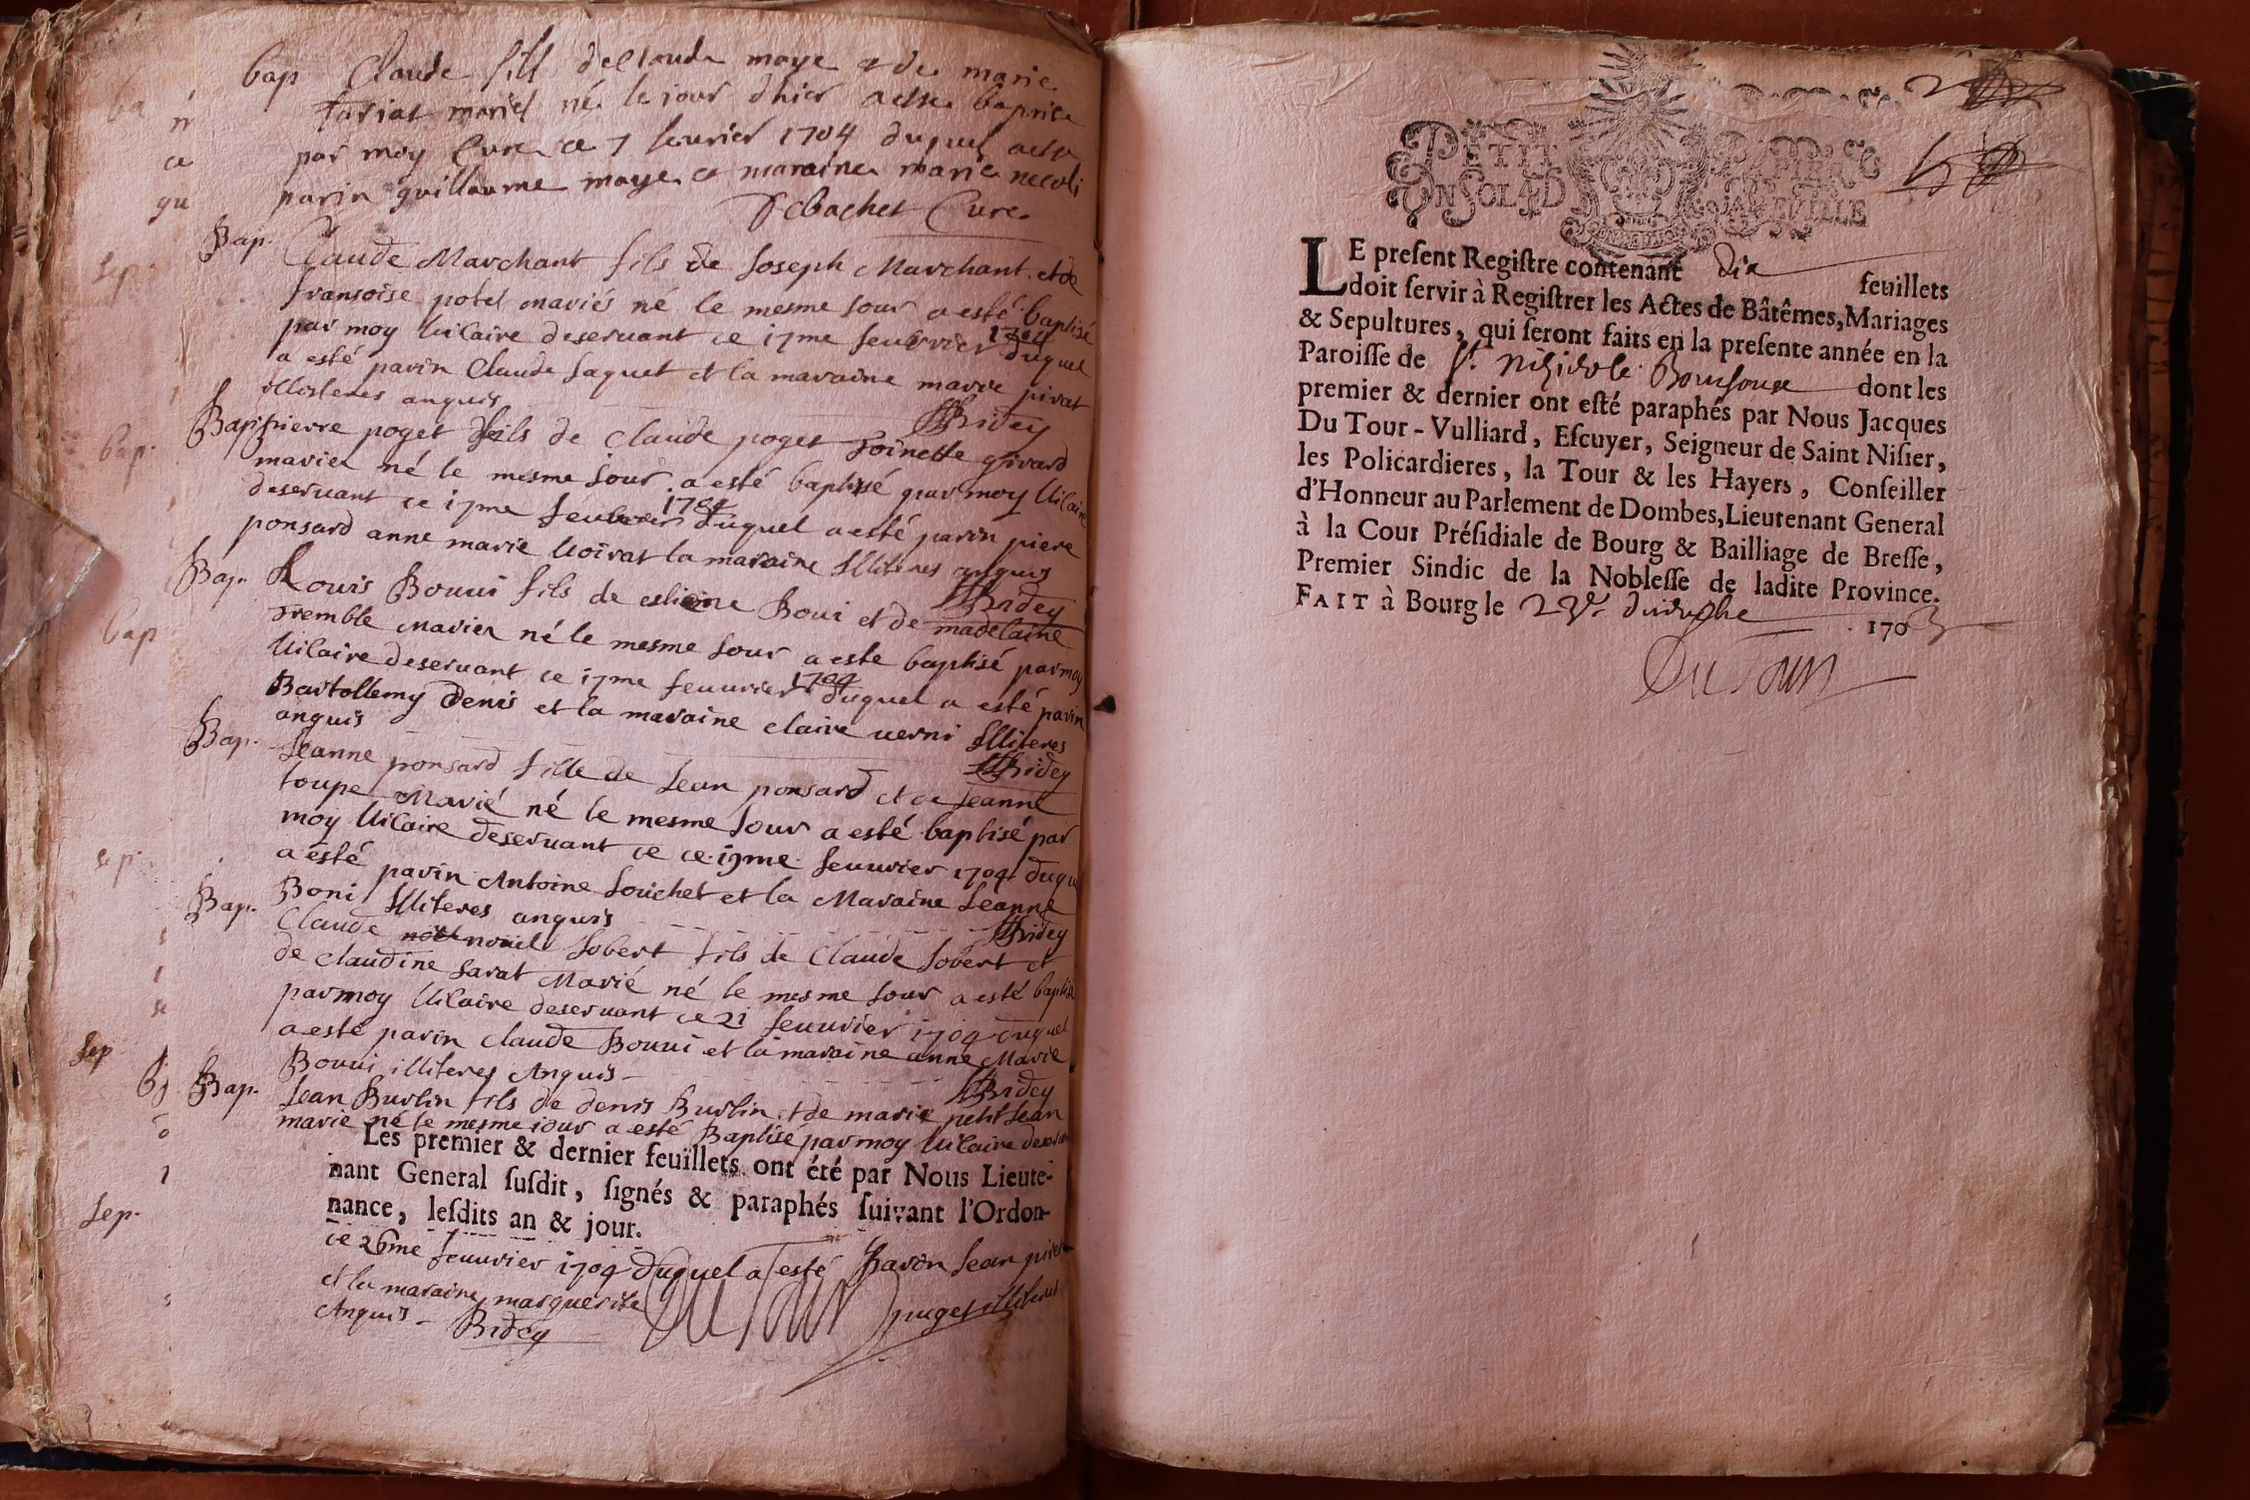 bap Claude fills de Claude moye & de marie
mariés né le jour d'hier a este baptise
par moy Curé ce 7 feurier 1704 duquel a este
parin guillaume moye et maraine marie
Debachet Cure
Bap. Claude Marchant fils de Joseph Marchant et de
fransoise potet mariés né le mesme Jour a esté baptisé
par moy Uicaire deseruant ce 17me feuurier 1704 duquel
a esté parin Claude Jaquet et la maraine marie pivat
Illiteres anquis
Bridey
Bap. pierre poget fils de claude poget Toinette girard
mariez né le mesme Jour a esté baptisé par moy Uicaire
deseruant ce 17me feuurier 1704 duquel a esté parin piere
ponsard anne marie Uoirat la maraine Illiteres anquis
Bridey
Bap. Louis Bouui fils de estiene Boui et de madelaine
Tremble Mariez né le mesme Jour a este baptisé par moy
Uicaire deseruant ce 17me feuurier 1704 duquel a esté parin
Bartollemy Denis et la maraine claire uerni Illiteres
anquis
Bridey
Bap. Jeanne ponsard fille de Jean ponsard et de Jeanne
toupe Marié né le mesme Jour a esté baptisé par
moy Uicaire deseruant ce ce 19me feuurier 1704 duquel
a esté parin Antoine Souchet et la Maraine Jeanne
Boni Illiteres anquis
Bridey
Bap. Claude nouel Jobert fils de Claude Jobert et
de claudine Sarat Marié né le mesme Jour a esté baptisé
par moy Uicaire deseruant ce 21 feuurier 1704 duquel
a esté parin claude Bouui et la maraine anne Marie
Bouui illiteres Anquis
Bridey
Bap. Jean Burlin fils de denis Burlin et de marie petit Jean
marié né le mesme iour a esté Baptisé par moy Uicaire deseruant
Les premier & dernier feuïllets ont été par Nous Lieute-
nant General ſuſdit, ſignés & paraphés ſuivant l'Ordon-
nance, leſdits an & jour.
ce 26me feuurier 1704 duquel a esté Parin Jean
et la maraine marguerite puget illiteres
Anquis Bridey
Du Tour
Sep
Sep.
PETIT PAPIER
UN SOL 4 D LA FEVILLE
LE preſent Regiſtre contenant dix feuillets
doit ſervir à Regiſtrer les Actes de Bâtêmes, Mariages
& Sepultures, qui ſeront faits en la preſente année en la
Paroiſſe de St. dont les
premier & dernier ont eſté paraphés par Nous Jacques
Du Tour-Vulliard, Eſcuyer, Seigneur de Saint Niſier,
les Policardieres, la Tour & les Hayers, Conſeiller
d'Honneur au Parlement de Dombes, Lieutenant General
à la Cour Préſidiale de Bourg & Bailliage de Breſſe,
Premier Sindic de la Nobleſſe de ladite Province.
FAIT à Bourg le 1703
Du Tour